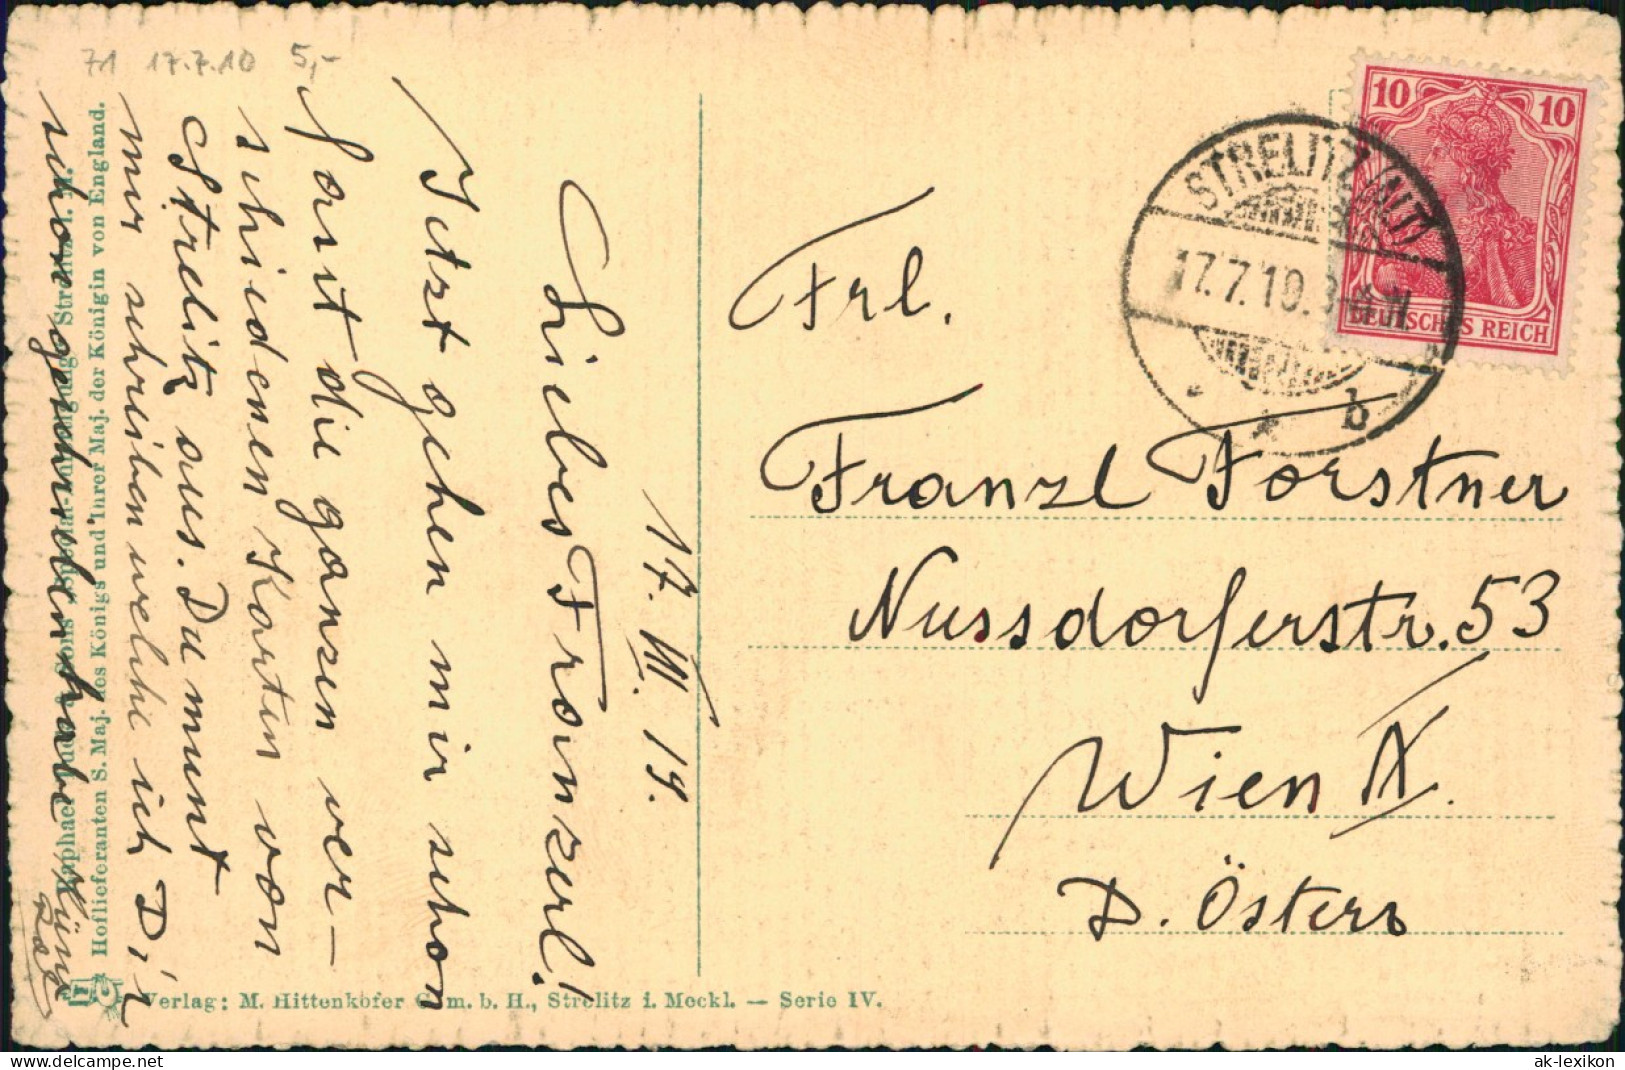 71 17.7.10 5,-
17. VII. 19.
Liebes Franzerl!
Jetzt gehen mir schon
fast die ganzen ver-
schiedenen Karten von
Strelitz aus. Du musst
mir schreiben welche ich Dir
schon geschrieben habe
Raphael Tuck & Sons Strelitz i. M.
Hoflieferanten S. Maj. des Königs und Ihrer Maj. der Königin von England.
Verlag: M. Hittenkofer G. m. b. H., Strelitz i. Meckl. — Serie IV.
10 10
DEUTSCHES REICH
STRELITZ (ALT)
17.7.10.
* b
Frl.
Franzl Forstner
Nussdorferstr. 53
Wien
D. Österr
www.ansichtskarten-lexikon.de
ak-lexikon